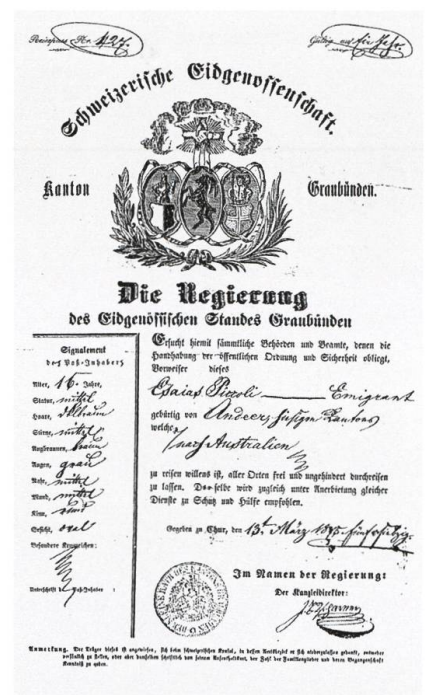 Reisepass Nr. 427.
Gültig auf ein Jahr.
Schweizerische Eidgenossenschaft.
Kanton Graubünden.
Die Regierung
des Eidgenössischen Standes Graubünden
Signalement
des Paß-Inhabers
Alter, 16 Jahre,
Statur, mittel
Haare,
Stirne, mittel
Augbraunen, braun
Augen, grau
Nase, mittel
Mund, mittel
Kinn, rund
Gesicht, oval
Besondere Kennzeichen:
Unterschrift des Paß-Inhabers:
Ersucht hiermit sämmtliche Behörden und Beamte, denen die
Handhabung der öffentlichen Ordnung und Sicherheit obliegt,
Vorweiser dieses
Esaias Piccoli Emigrant
gebürtig von Andeer, hiesigen Kantons
welcher
nach Australien
zu reisen willens ist, aller Orten frei und ungehindert durchreisen
zu lassen. Derselbe wird zugleich unter Anerbietung gleicher
Dienste zu Schutz und Hülfe empfohlen.
Gegeben zu Chur, den 13t März
Im Namen der Regierung:
Der Kanzleidirektor:
Anmerkung. Der Träger dieses ist angewiesen, sich beim schweizerischen Konsul, in dessen Amtsbezirk er sich niederzulassen gedenkt, entweder
persönlich zu stellen, oder aber demselben schriftlich von seinem Aufenthaltsort, der Zahl der Familienglieder und deren Vergangenschaft
Kenntniß zu geben.